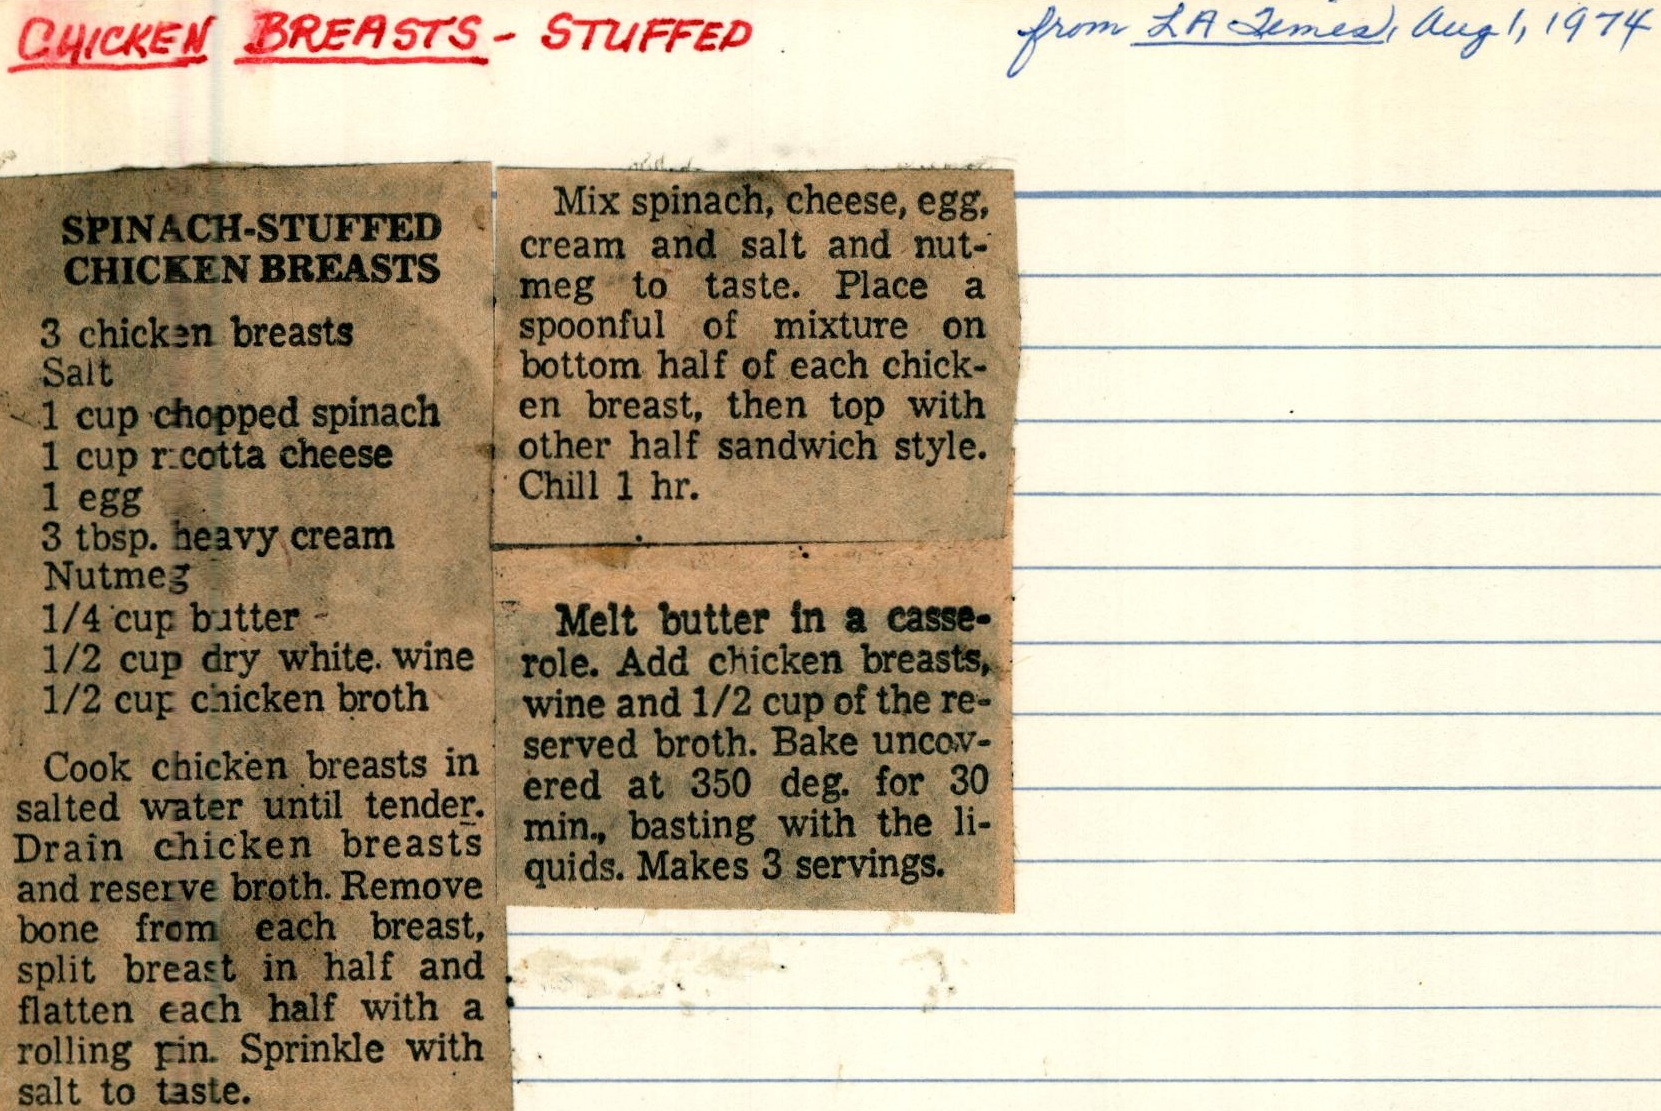 CHICKEN BREASTS - STUFFED
from LA Times, Aug 1, 1974
SPINACH-STUFFED
CHICKEN BREASTS
3 chicken breasts
Salt
1 cup chopped spinach
1 cup ricotta cheese
1 egg
3 tbsp. heavy cream
Nutmeg
1/4 cup butter
1/2 cup dry white wine
1/2 cup chicken broth
Cook chicken breasts in
salted water until tender.
Drain chicken breasts
and reserve broth. Remove
bone from each breast,
split breast in half and
flatten each half with a
rolling pin. Sprinkle with
salt to taste.
Mix spinach, cheese, egg,
cream and salt and nut-
meg to taste. Place a
spoonful of mixture on
bottom half of each chick-
en breast, then top with
other half sandwich style.
Chill 1 hr.
Melt butter in a casse-
role. Add chicken breasts,
wine and 1/2 cup of the re-
served broth. Bake uncov-
ered at 350 deg. for 30
min., basting with the li-
quids. Makes 3 servings.